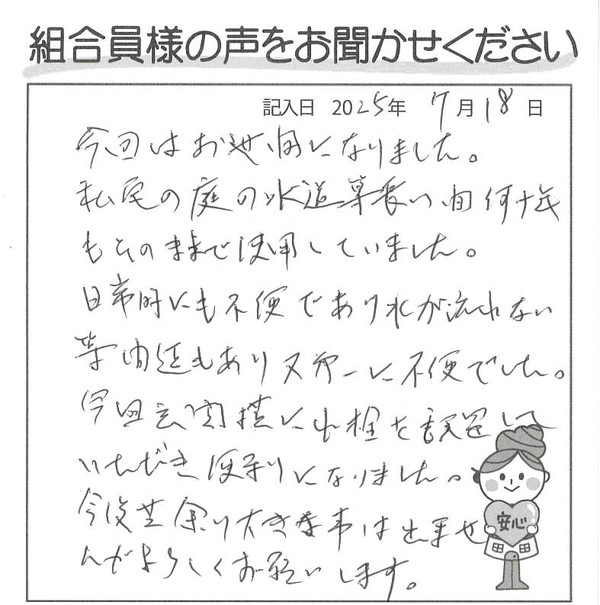 組合員様の声をお聞かせください
記入日 2025年 7月18日
今回はお世話になりました。
私宅の庭の水道 長い間何十年
もそのままで使用していました。
日常的にも不便であり水が流れない
等問題もあり 非常に不便でした。
今回玄関横に水栓を設置して
いただき便利になりました。
今後共余り大きな事は出来ませ
んがよろしくお願いします。
安心